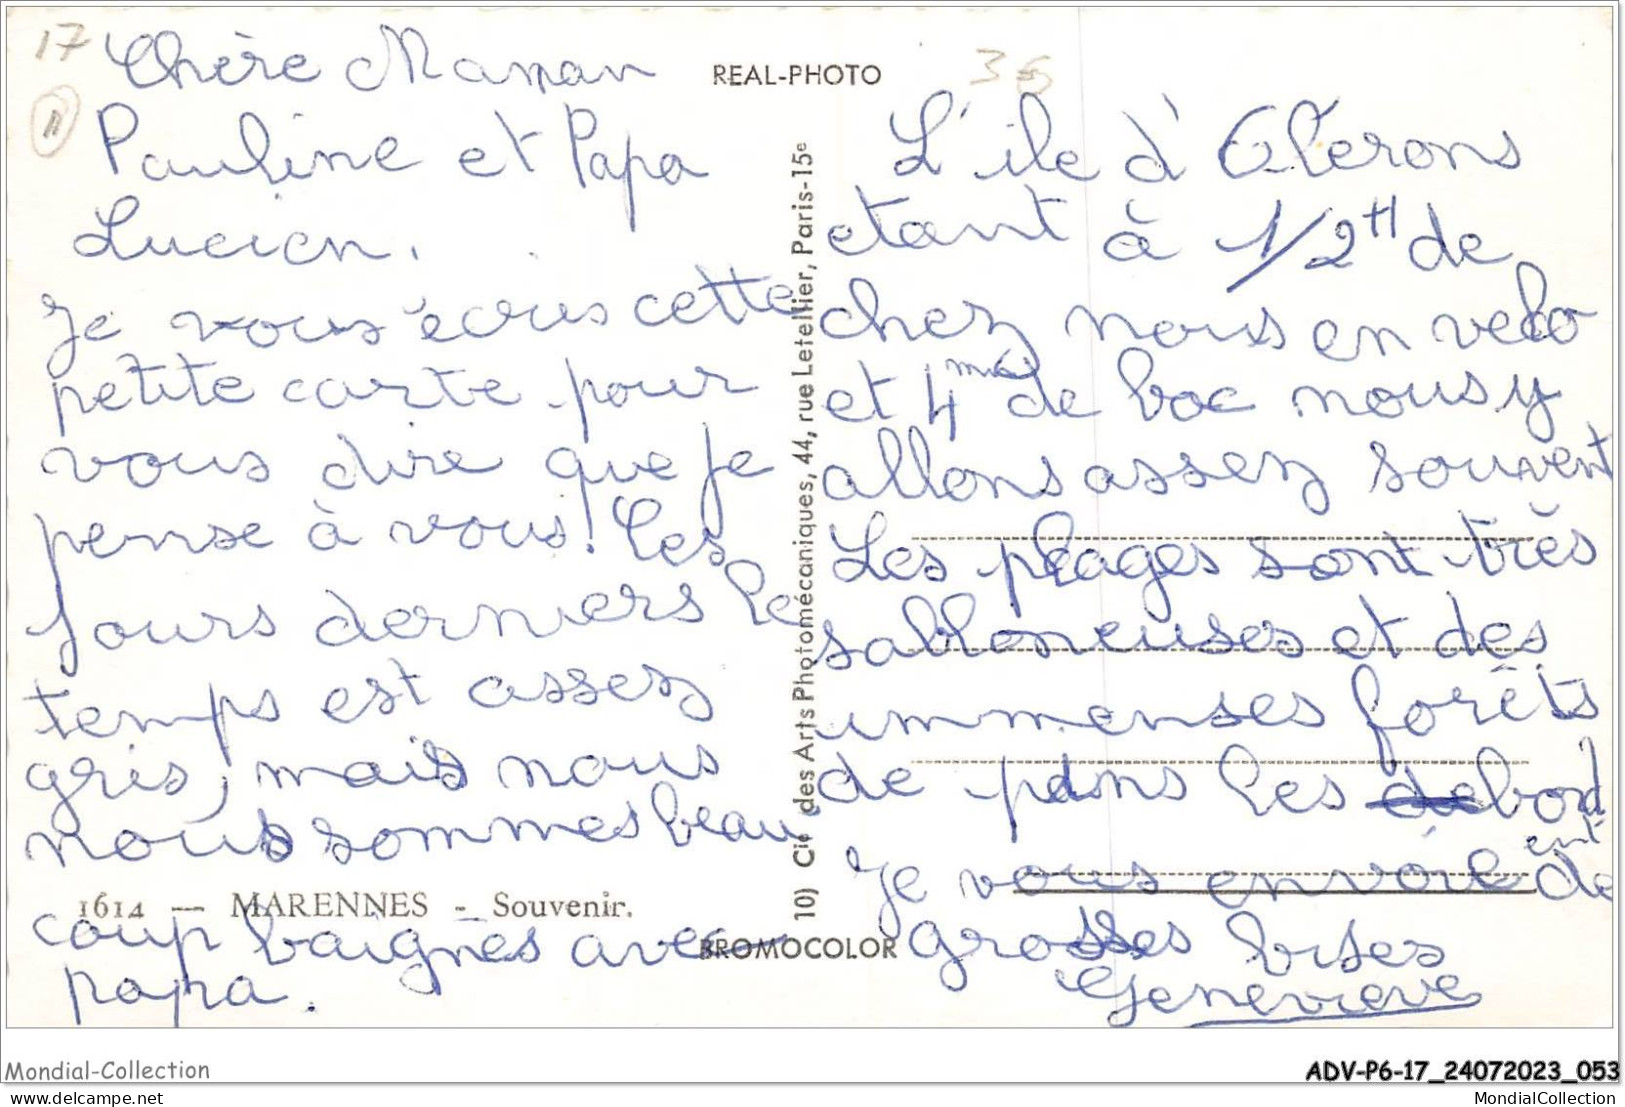 17
11
Chère Maman
Pauline et Papa
Lucien.
Je vous écris cette
petite carte pour
vous dire que je
pense à vous! Ces
jours derniers le
temps est assez
gris, mais nous
nous sommes beau
coup baignés avec
papa.
1614 — MARENNES - Souvenir.
REAL-PHOTO
10) Cie des Arts Photomécaniques, 44, rue Letellier, Paris-15e
BROMOCOLOR
L'île d'Olérons
etant à 1/2 H de
chez nous en velo
et 4 de bac nous y
allons assez souvent
Les plages sont très
sabloneuses et des
immenses forêts
de pins les bord
ent
Je vous envoie de
grosses bises
Geneviève
Mondial-Collection
ADV-P6-17_24072023_053
www.mondialcollection.com
MondialCollection